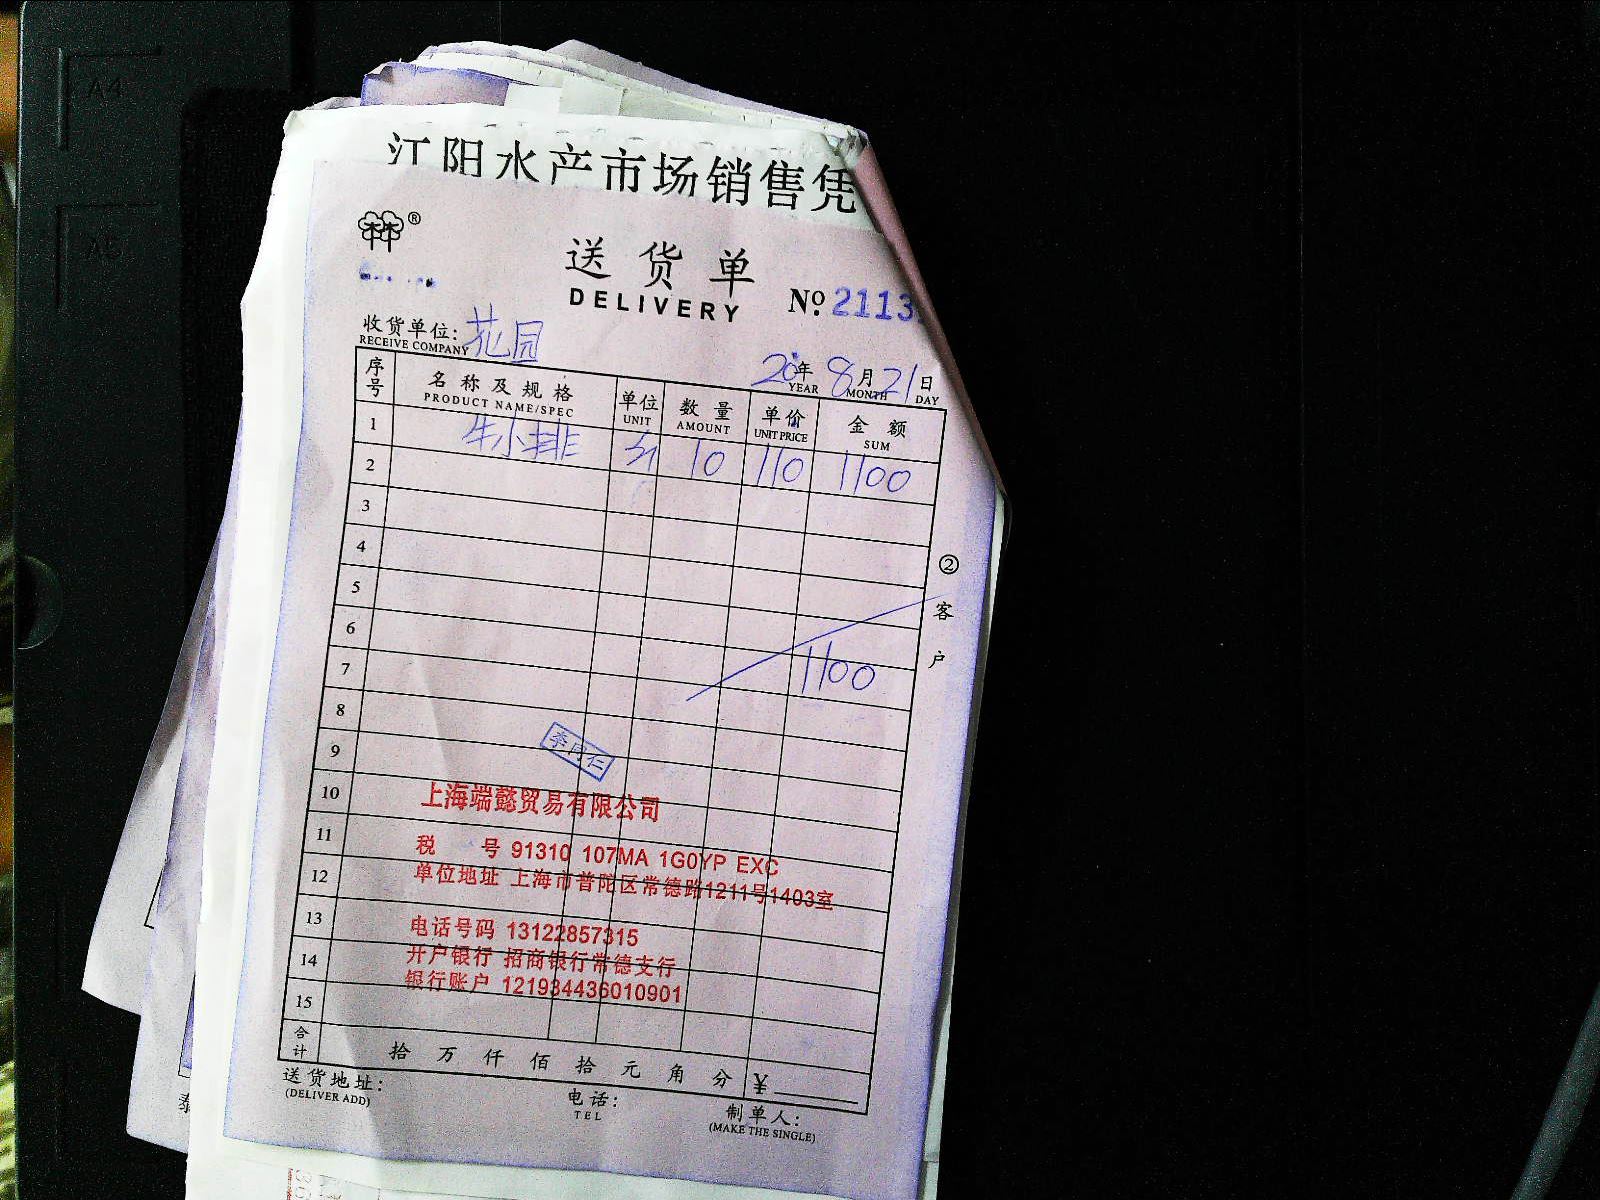 A4
A5
江阳水产市场销售凭
®
送货单
DELIVERY
№ 2113
收货单位: 花园
RECEIVE COMPANY
20年 8月 21日
YEAR MONTH DAY
序号 名称及规格 单位 数量 单价 金额
PRODUCT NAME/SPEC UNIT AMOUNT UNIT PRICE SUM
1 牛小排 10 110 1100
2
3
4
5
6
7 1100
8
9 李同仁
10 上海端懿贸易有限公司
11 税 号 91310 107MA 1G0YP EXC
12 单位地址 上海市普陀区常德路1211号1403室
13 电话号码 13122857315
14 开户银行 招商银行常德支行
银行账户 121934436010901
15
合计 拾 万 仟 佰 拾 元 角 分 ¥
送货地址: 电话: 制单人:
(DELIVER ADD) TEL (MAKE THE SINGLE)
②客户